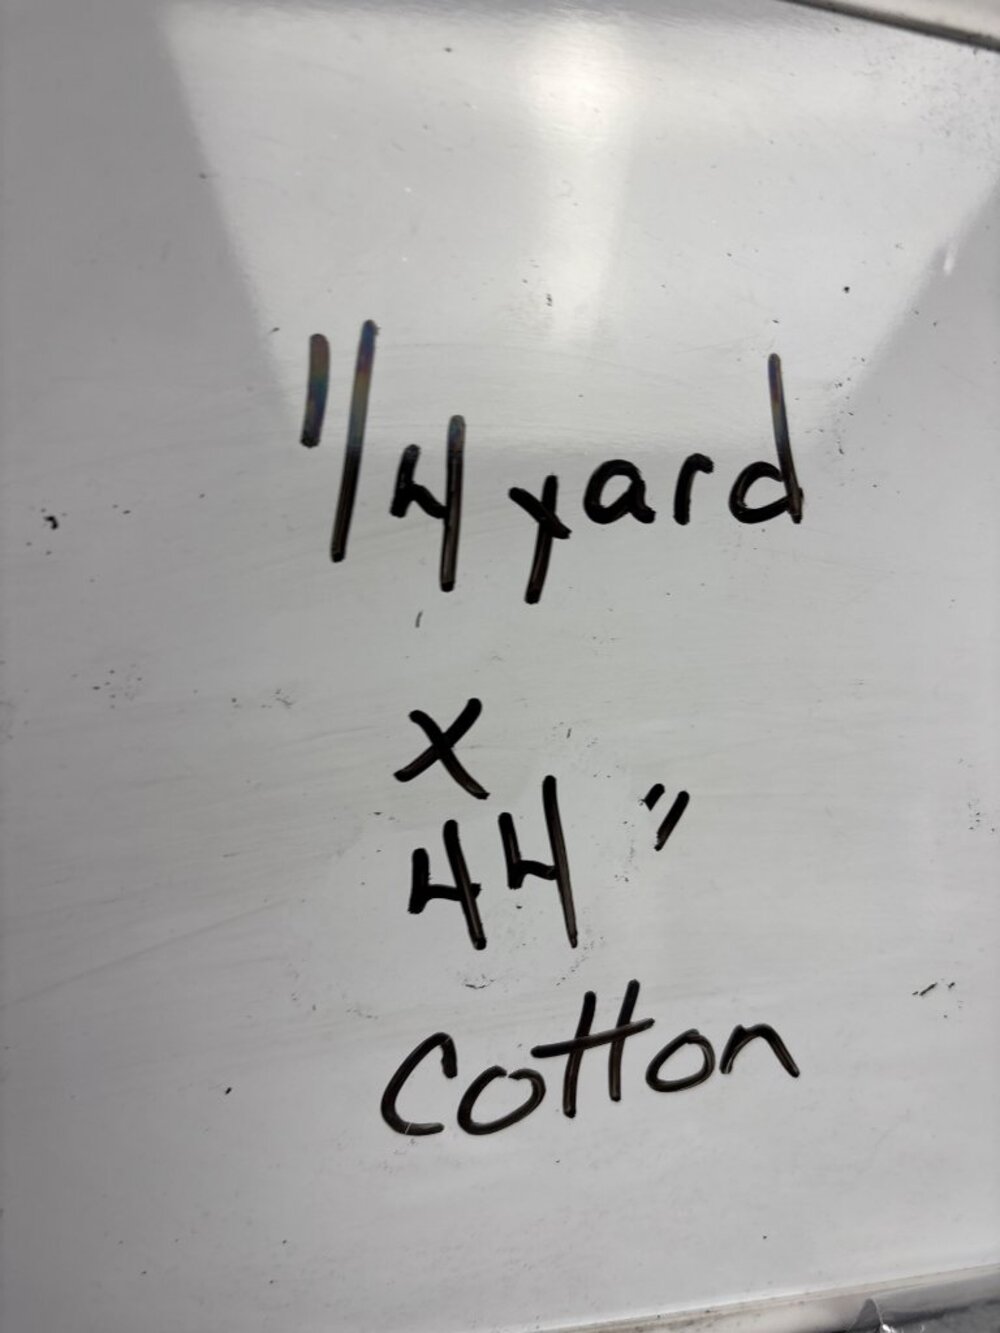 1/4 yard
x
44"
Cotton